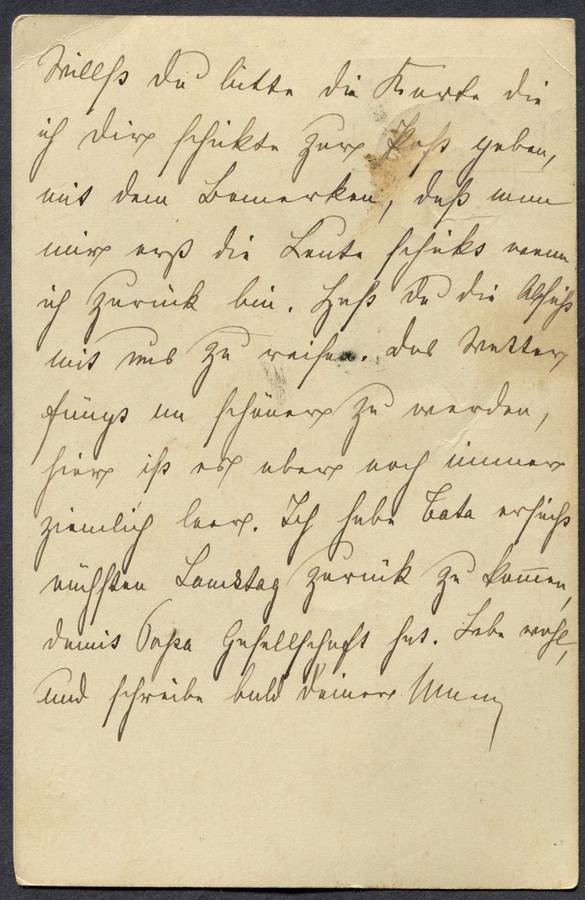 Willst du bitte die Karte die
ich dir schickte zur Post geben,
mit dem Bemerken, daß man
mir erst die Leute schickt wenn
ich zurück bin. Hast du die Absicht
mit uns zu reisen. das Wetter
fängt an schöner zu werden,
hier ist es aber noch immer
ziemlich leer. Ich habe Bata ersucht
nächsten Samstag zurück zu kom̄en,
damit Papa Gesellschaft hat. Lebe wohl,
und schreibe bald deiner Mam